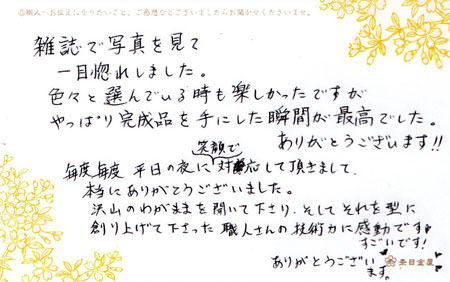 ◎職人へお伝えになりたいこと、ご感想などございましたらお聞かせくださいませ。
雑誌で写真を見て
一目惚れしました。
色々と選んでいる時も楽しかったですが
やっぱり完成品を手にした瞬間が最高でした。
ありがとうございます!!
笑顔で
毎度毎度 平日の夜に対応して頂きまして、
本当にありがとうございました。
沢山のわがままを聞いて下さり、そして それを型に
創り上げて下さった 職人さんの技術力に感動です♥
すごいです!
杢目金屋
ありがとうござい
ます。